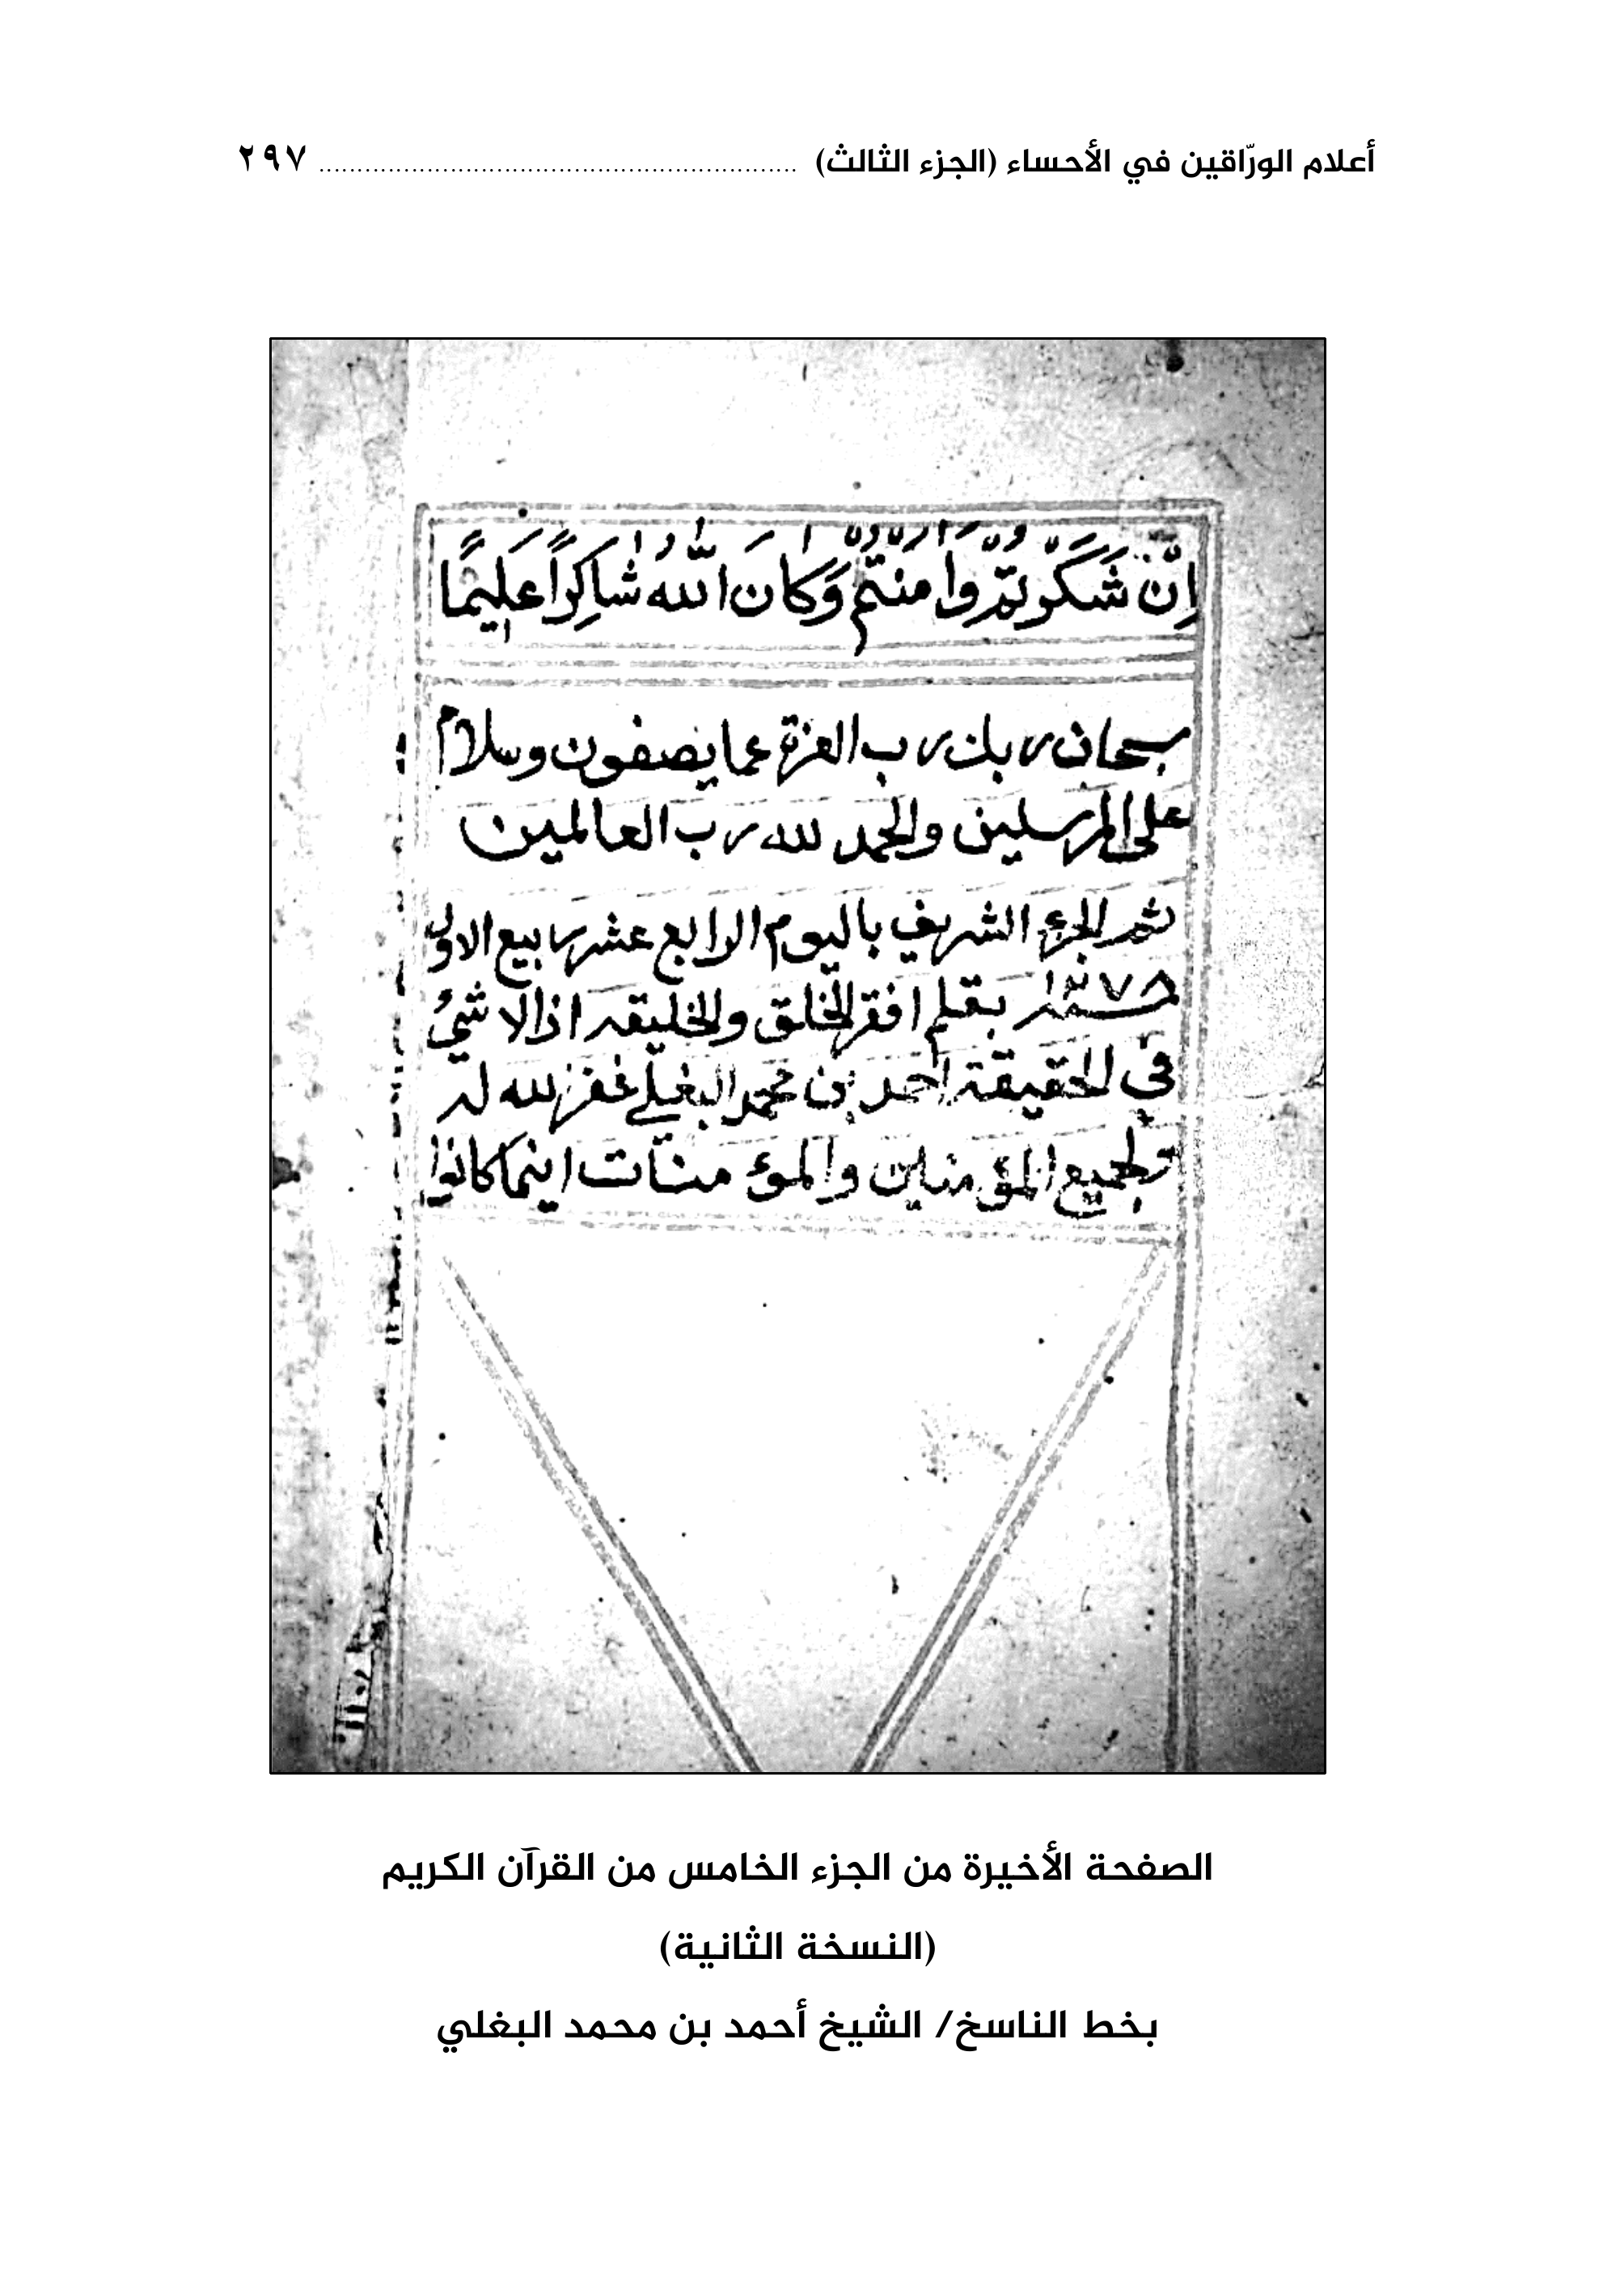 أعلام الورّاقين في الأحساء (الجزء الثالث) ................................................................ ٢٩٧
اِنّْ شَكَرْتُمْ وَاٰمَنْتُمْ وَكَانَ اللّٰهُ شَاكِرًا عَلِيمًا
سبحان ربك رب العزة عما يصفون وسلام
على المرسلين والحمد لله رب العالمين
تم الجزء الشريف باليوم الرابع عشر ربيع الاول
بقلم افقر الخلق والخليقه اذالا شيء
في الحقيقة احمد بن محمد البغلي غفر الله له
ولجميع المؤمنين والمؤمنات اينما كانوا
الصفحة الأخيرة من الجزء الخامس من القرآن الكريم
(النسخة الثانية)
بخط الناسخ/ الشيخ أحمد بن محمد البغلي